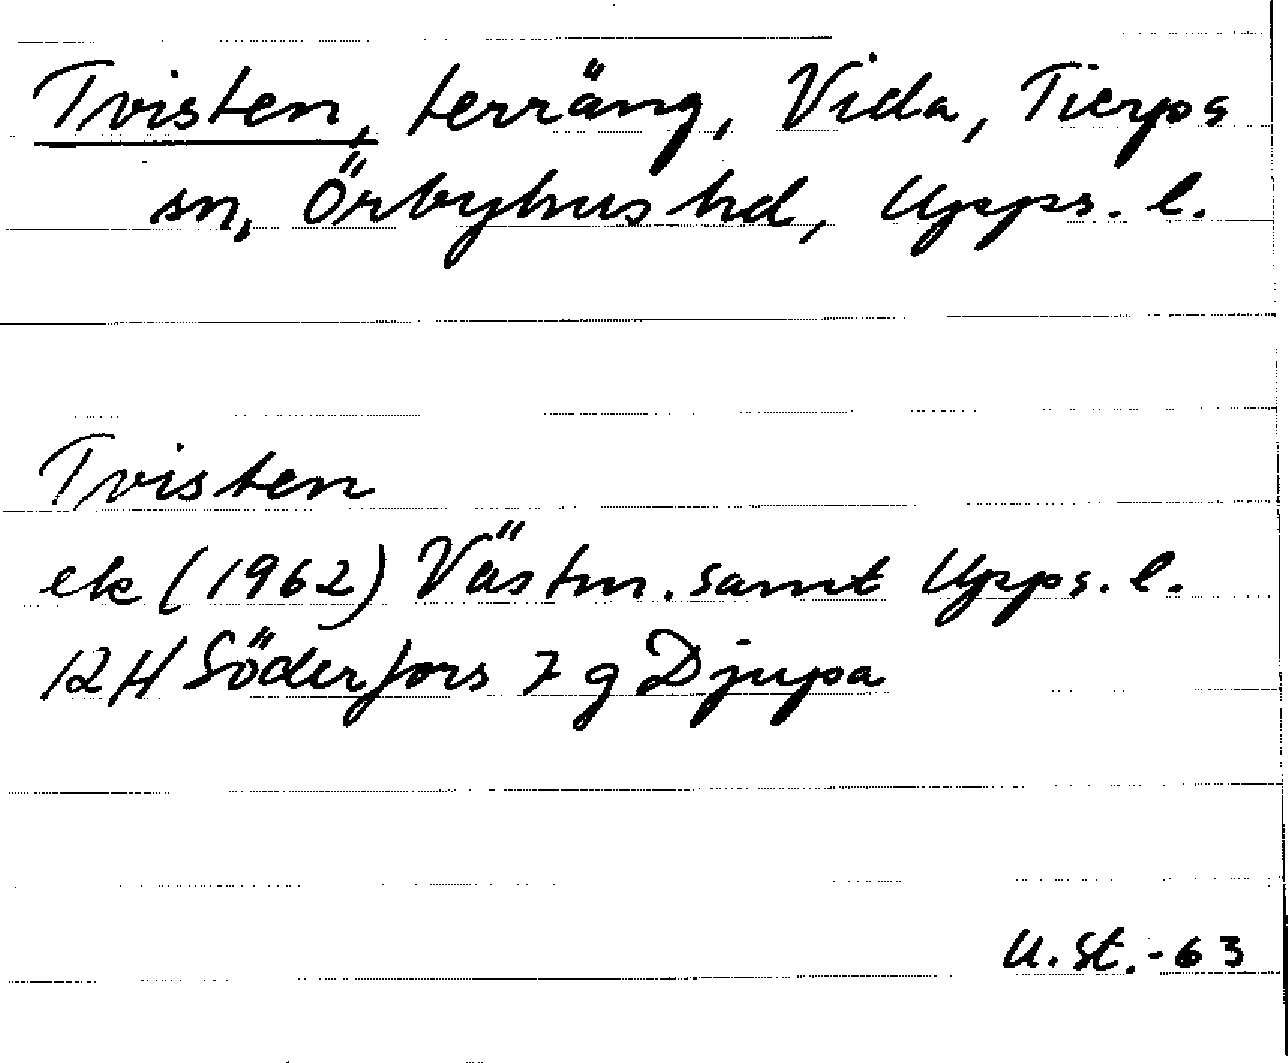 Tvisten, terräng, Vida, Tierps
sn, Örbyhus hd, Upps. l.
Tvisten
ek (1962) Västm. samt Upps. l.
12 H Söderfors 7 g Djupa
U. St. -63